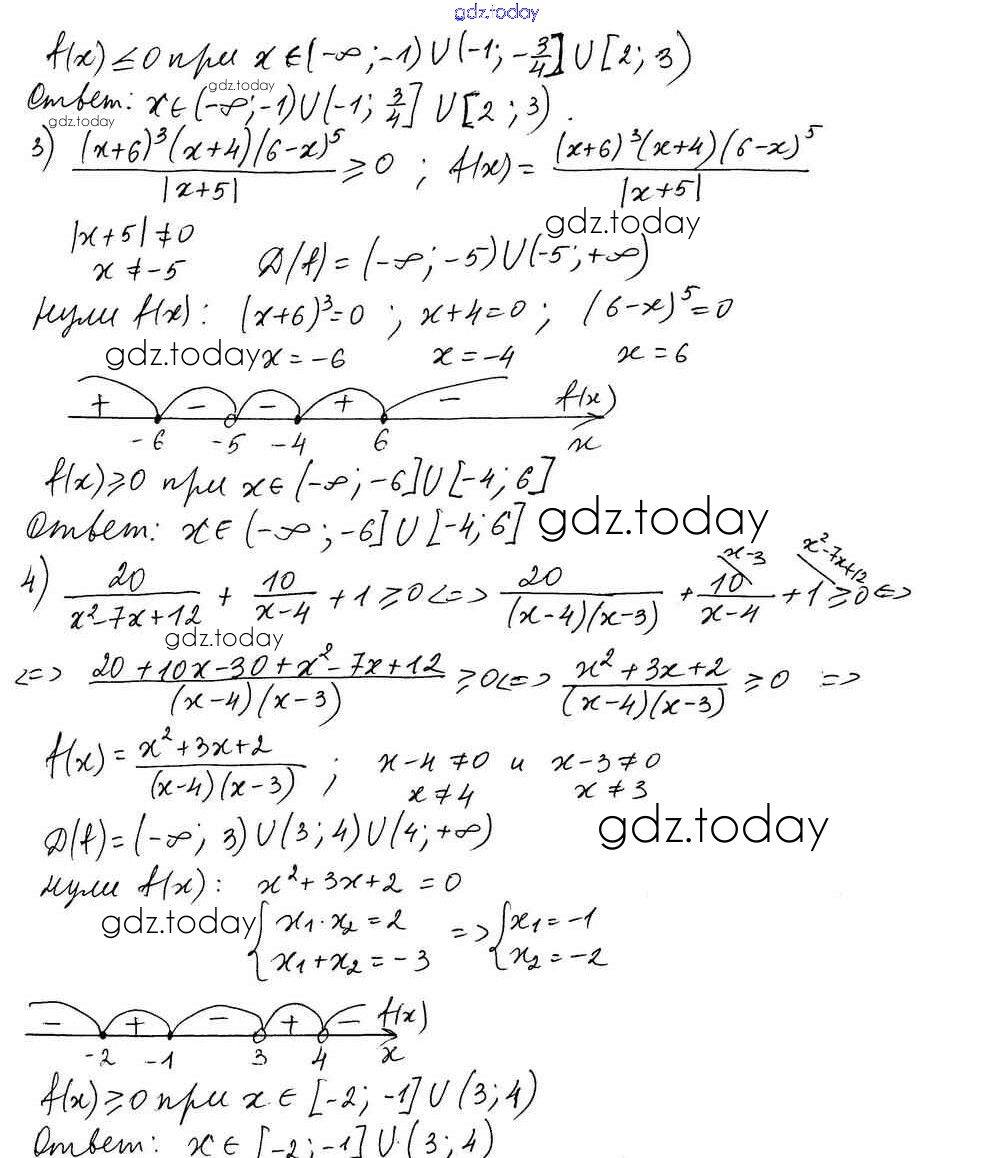 gdz.today
f(x) ≤ 0 при x ∈ (-∞; -1) ∪ (-1; -3/4] ∪ [2; 3)
gdz.today
Ответ: x ∈ (-∞; -1) ∪ (-1; 3/4] ∪ [2; 3).
gdz.today
3) (x+6)³(x+4)(6-x)⁵ / |x+5| ≥ 0 ; f(x) = (x+6)³(x+4)(6-x)⁵ / |x+5|
gdz.today
|x+5| ≠ 0
x ≠ -5 D(f) = (-∞; -5) ∪ (-5; +∞)
нули f(x): (x+6)³=0 ; x+4=0 ; (6-x)⁵=0
gdz.today x = -6 x = -4 x = 6
+ - - + - f(x)
-6 -5 -4 6 x
f(x) ≥ 0 при x ∈ (-∞; -6] ∪ [-4; 6]
Ответ: x ∈ (-∞; -6] ∪ [-4; 6] gdz.today
x-3 x²-7x+12
4) 20 / (x²-7x+12) + 10 / (x-4) + 1 ≥ 0 <=> 20 / ((x-4)(x-3)) + 10 / (x-4) + 1 ≥ 0 <=>
gdz.today
<=> (20+10x-30+x²-7x+12) / ((x-4)(x-3)) ≥ 0 <=> (x²+3x+2) / ((x-4)(x-3)) ≥ 0 =>
f(x) = (x²+3x+2) / ((x-4)(x-3)) ; x-4 ≠ 0 и x-3 ≠ 0
x ≠ 4 x ≠ 3
D(f) = (-∞; 3) ∪ (3; 4) ∪ (4; +∞) gdz.today
нули f(x): x²+3x+2 = 0
gdz.today { x₁·x₂ = 2 => { x₁ = -1
x₁+x₂ = -3 x₂ = -2
- + - + - f(x)
-2 -1 3 4 x
f(x) ≥ 0 при x ∈ [-2; -1] ∪ (3; 4)
Ответ: x ∈ [-2; -1] ∪ (3; 4)